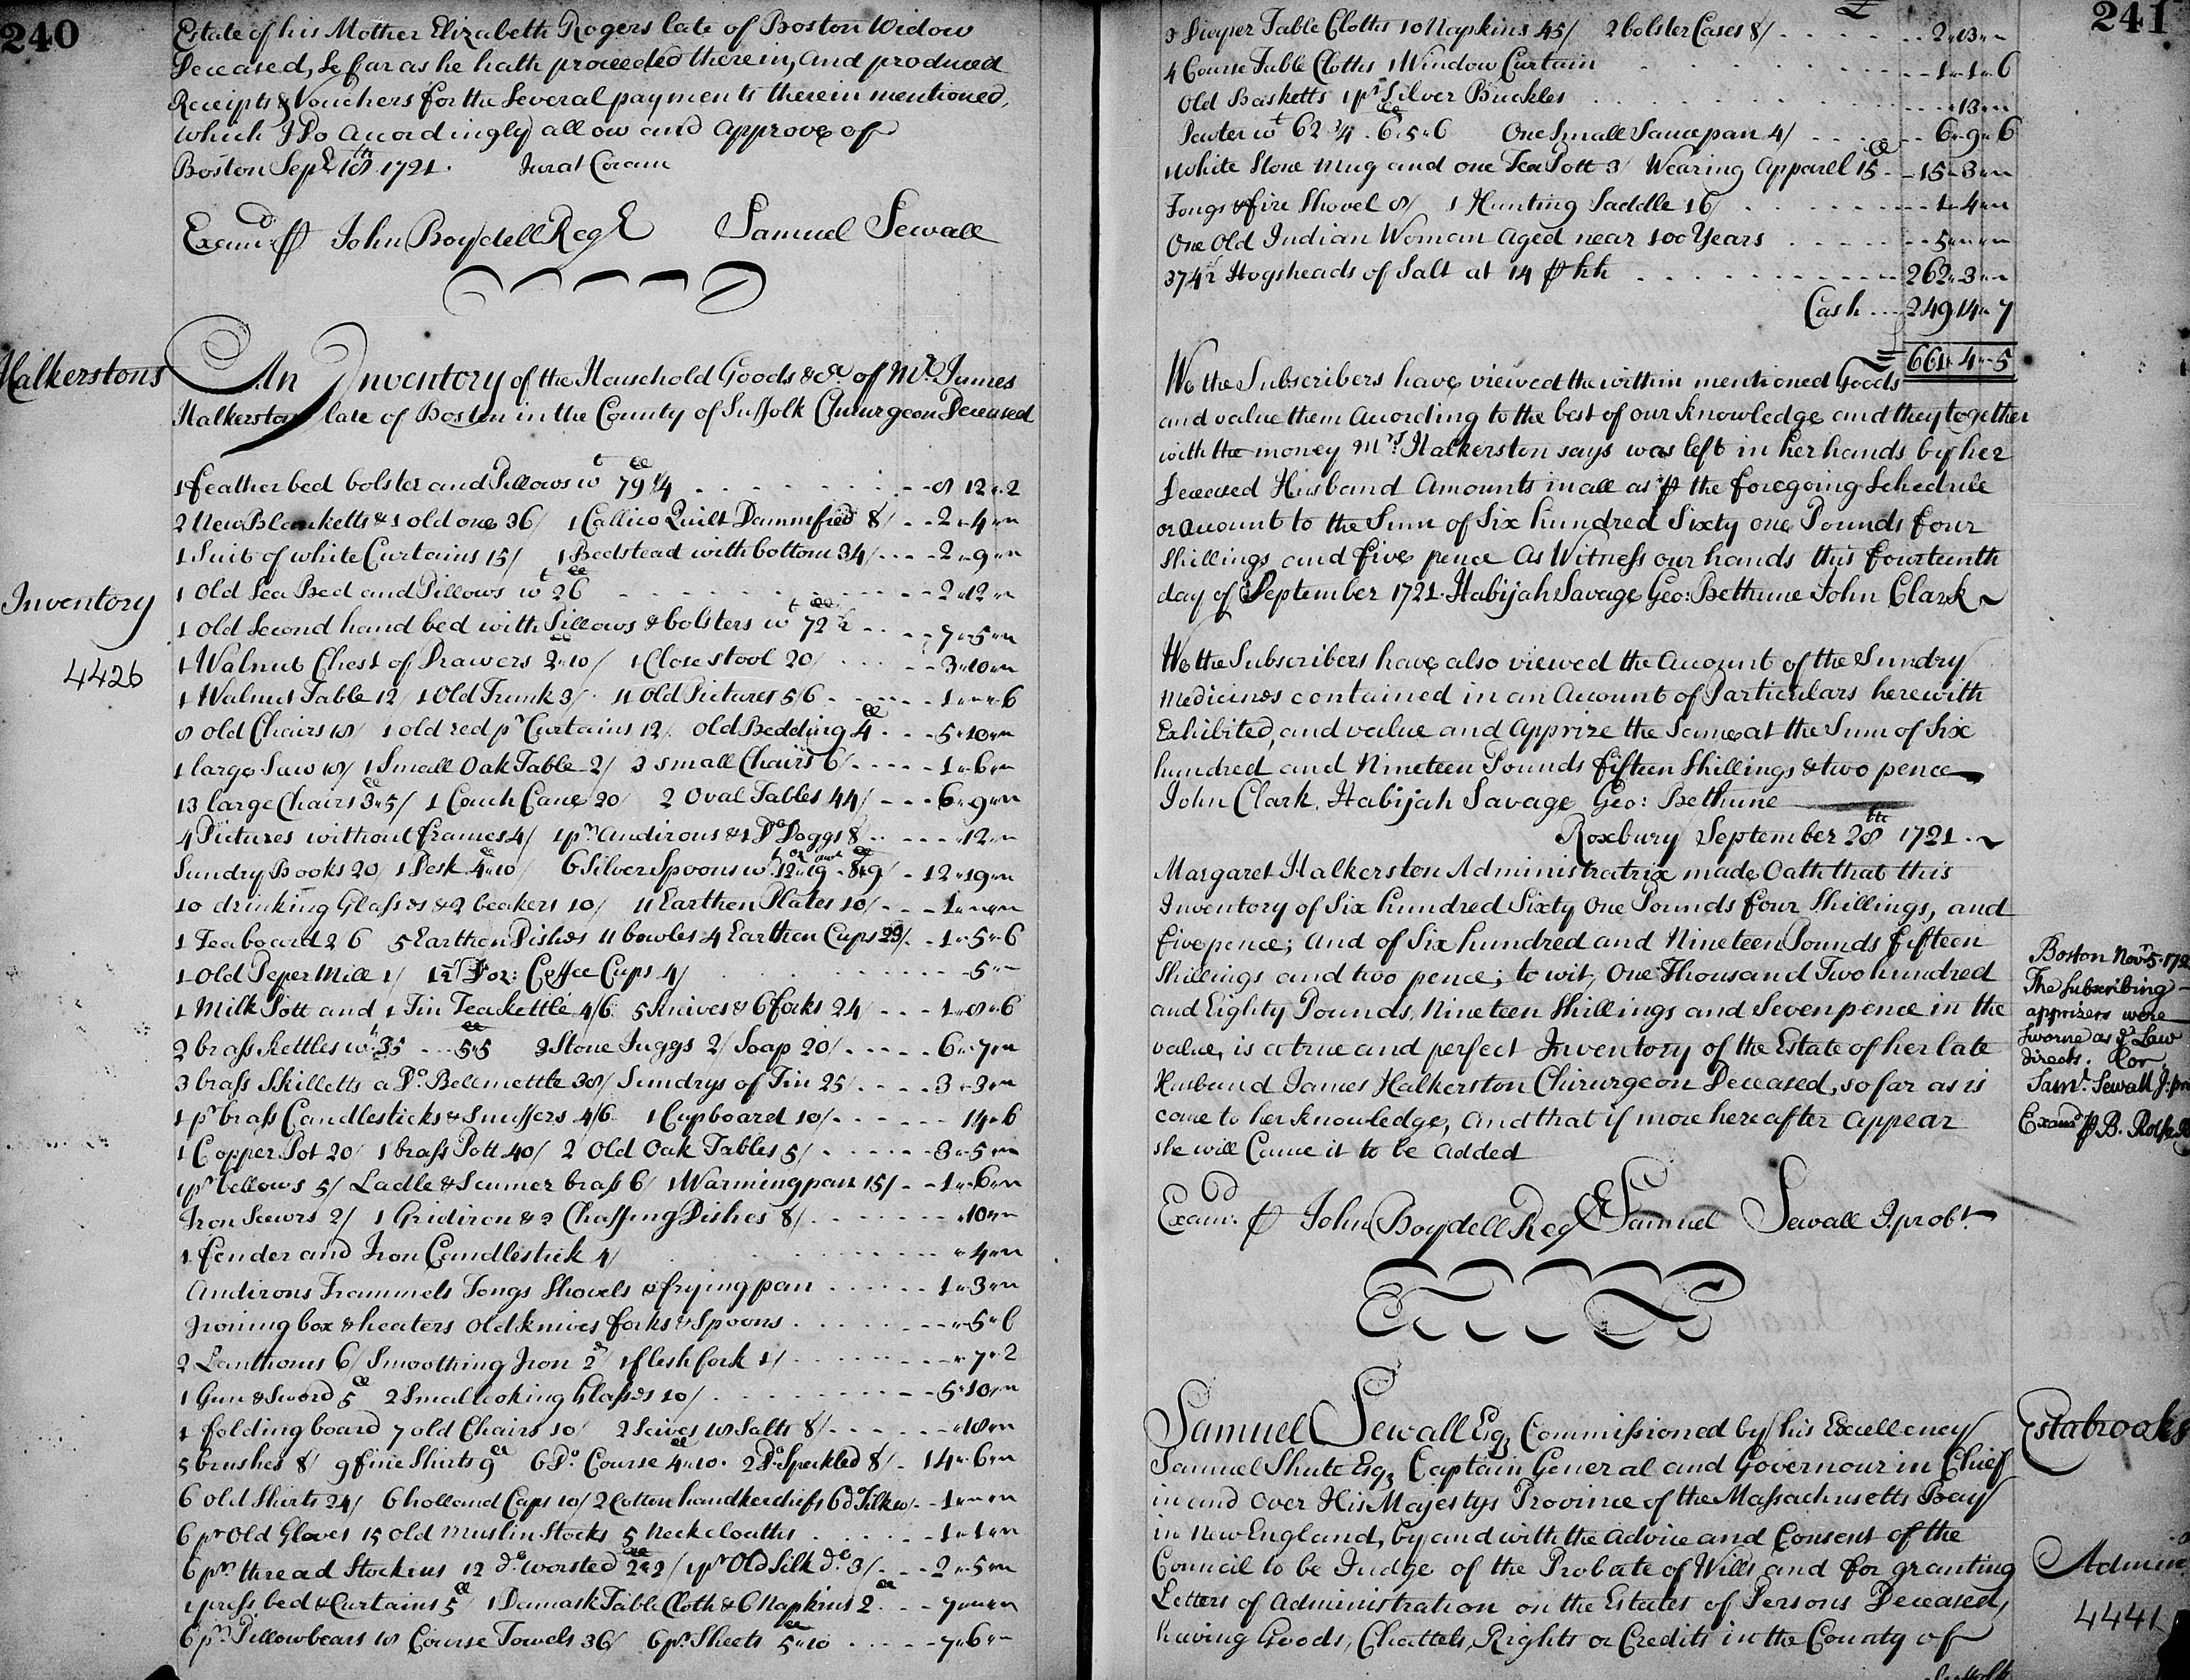 240
Estate of his Mother Elizabeth Rogers late of Boston Widow
Deceased, So far as he hath proceeded therein, and produced
Receipts & Vouchers for the Several payments therein mentioned,
which I Do Acordingly allow and approve of
Boston Sepr. 18th. 1721. Jurat Coram
Examd. ⅌ John Boydell Regr Samuel Sewall
Halkerstons
An Inventory of the Household Goods &ca. of Mr. James
Halkerston late of Boston in the County of Suffolk Chirurgeon Deceased
1 featherbed bolster and Pillows wt 79 ¼ - - 8 12 2
2 New Blanketts & 1 old one 36/ 1 Callico Quilt Damnified 8/ - - 2 " 4 "
1 Suit of white Curtains 15/ 1 Bedstead with bottom 34/ - - 2 " 9 "
Inventory
1 Old Sea Bed and Pillows wt 26 - - 2 " 12 "
1 Old Second hand bed with Pillows & bolsters wt 72 ½ - - 7 " 5 "
4426
1 Walnut Chest of Drawers 2 " 10/ 1 Close stool 20/ - - 3 " 10 "
1 Walnut Table 12/ 1 Old Trunk 3/ 11 Old Pictures 5/6 - - 1 " " 6
8 old Chairs 18/ 1 old red pr Curtains 12/ old Bedding 4 - - 5 " 10 "
1 large Saw 18/ 1 Small Oak Table 2/ 3 small Chairs 6/ - - 1 " 6 "
13 large Chairs 3 " 5/ 1 Couch Cane 20/ 2 Oval Tables 44/ - - 6 " 9 "
4 Pictures without frames 4/ 1 pr andirons & 1 Do Doggs 8 - - 12 "
Sundry Books 20/ 1 Desk 4 " 10/ 6 Silver Spoons wt. 12 " 19 - 8 " 9/ - 12 " 19 "
10 drinking Glasses & 2 beakers 10/ 11 Earthen Plates 10/ - - 1 " "
1 Teaboard 2/6 5 Earthen Dishes 11 bowles 4 Earthen Cups 23/ - - 1 " 5 " 6
1 Old Peper Mill 1/ 1½ Doz: Coffee Cups 4/ - - 5 "
1 Milk Pott and 1 Tin Teakettle 4/6 5 Knives & 6 forks 24/ - - 1 " 8 " 6
2 brass Kettles wt. 35 - - 5 " 5 3 Stone Juggs 2/ Soap 20/ - - 6 " 7 "
3 brass Skilletts a Do. Bellmettle 38/ Sundrys of Tin 25/ - - 3 " 3 "
1 pr brass Candlesticks & Snuffers 4/6 1 Cupboard 10/ - - 14 " 6
1 Copper Pot 20/ 1 brass Pott 40/ 2 Old Oak Tables 5/ - - 3 " 5 "
1 pr bellows 5/ Ladle & Scumer brass 6/ 1 Warming pan 15/ - - 1 " 6 "
Iron Scewrs 2/ 1 Gridiron & 2 Chaffing Dishes 8/ - - 10 "
1 fender and Iron Candlestick 4/ - - " 4 "
Andirons Trammels Tongs Shovels & frying pan - - 1 " 3 "
Ironing box & heaters old knives forks & Spoons - - " 5 " 6
2 Lanthorns 6/ Smoothing Iron 2d 1 flesh fork 1/ - - " 7 " 2
1 Gun & Sword 5 2 Small looking Glasses 10/ - - 5 " 10 "
1 folding board 7 old Chairs 10/ 2 Salts 8/ - - 18 "
5 brushes 8/ 9 fine Shirts 9 6 Do. Course 4 " 10. 2 Do Speckled 8/ - 14 " 6 "
6 old Shirts 24/ 6 holland Caps 10/ 2 Cotton handkerchiefs 6 do Silk - - 1 " "
6 pr Old Gloves 15 old Muslin Stocks 5 Neckcloaths - - 1 " 1 "
6 pr. thread Stockins 12 do. worsted 2 " 2/ 1 pr Old Silk do. 3/ - - 2 " 5 "
1 press bed & Curtains 5 1 Damask Table Cloth & 6 Napkins 2 - - 7 " "
6 pr. Pillowbears 18 Course Towels 36/ 6 pr. Sheets 5 " 10 - - 7 " 6 "
241
3 Diaper Table Cloths 10 Napkins 45/ 2 bolster Cases 8/ - - 2 " 13 "
4 Course Table Cloths 1 Window Curtain - - 1 " 1 " 6
Old Basketts 1 pr Silver Buckles - - 13 "
Pewter wt 62 ¾ . 6 " 5 " 6 One Small Saucepan 4/ - - 6 " 9 " 6
1 white Stone Mug and one Tea Pott 3/ Wearing Apparel 15 - - 15 " 3 "
Tongs & fire Shovel 8/ 1 Hunting Saddle 16/ - - 1 " 4 "
One Old Indian Woman aged near 100 Years - - 5 " "
374½ Hogsheads of Salt at 14 ⅌ hh - - 262 " 3 "
Cash - - 249 14 " 7
= 661 " 4 " 5
We the Subscribers have viewed the within mentioned Goods
and value them Acording to the best of our Knowledge and they together
with the money Mrs. Halkerston says was left in her hands by her
Deceased Husband Amounts in all as ⅌ the foregoing Schedule
or acount to the Sum of Six hundred Sixty one Pounds four
Shillings and five pence As Witness our hands this fourteenth
day of September 1721. Habijah Savage Geo: Bethune John Clark
We the Subscribers have also viewed the Account of the Sundry
Medicines contained in an Account of Particulars herewith
Exhibited, and value and Apprize the Same at the Sum of Six
hundred and Nineteen Pounds fifteen Shillings & two pence
John Clark, Habijah Savage Geo: Bethune
Roxbury September 28th 1721.
Margaret Halkerston Administratrix made Oath that this
Inventory of Six hundred Sixty One Pounds four Shillings, and
five pence; And of Six hundred and Nineteen Pounds fifteen
Shillings and two pence; to wit, One Thousand Two hundred
and Eighty Pounds, Nineteen Shillings and Sevenpence in the
value, is a true and perfect Inventory of the Estate of her late
Husband James Halkerston Chirurgeon Deceased, so far as is
come to her Knowledge, And that if more hereafter Appear
she will Cause it to be Added
Boston Novr. 5. 172
The Subscribing
apprizers were
Sworne as ye. Law
directs. Cor
Saml. Sewall J. pr
Examd ⅌ B. Rolfe R
Examd. ⅌ John Boydell Regr Samuel Sewall J. probt.
Estabrooks
Samuel Sewall Esqr Commissioned by his Excellency
Samuel Shute Esqr Captain General and Governour in Chief
in and Over His Majestys Province of the Massachusetts Bay
in New England, by and with the Advice and Consent of the
Council to be Judge of the Probate of Wills and for granting
Letters of Administration on the Estates of Persons Deceased,
having Goods, Chattels, Rights or Credits in the County of
Admin
4441
Suffolk